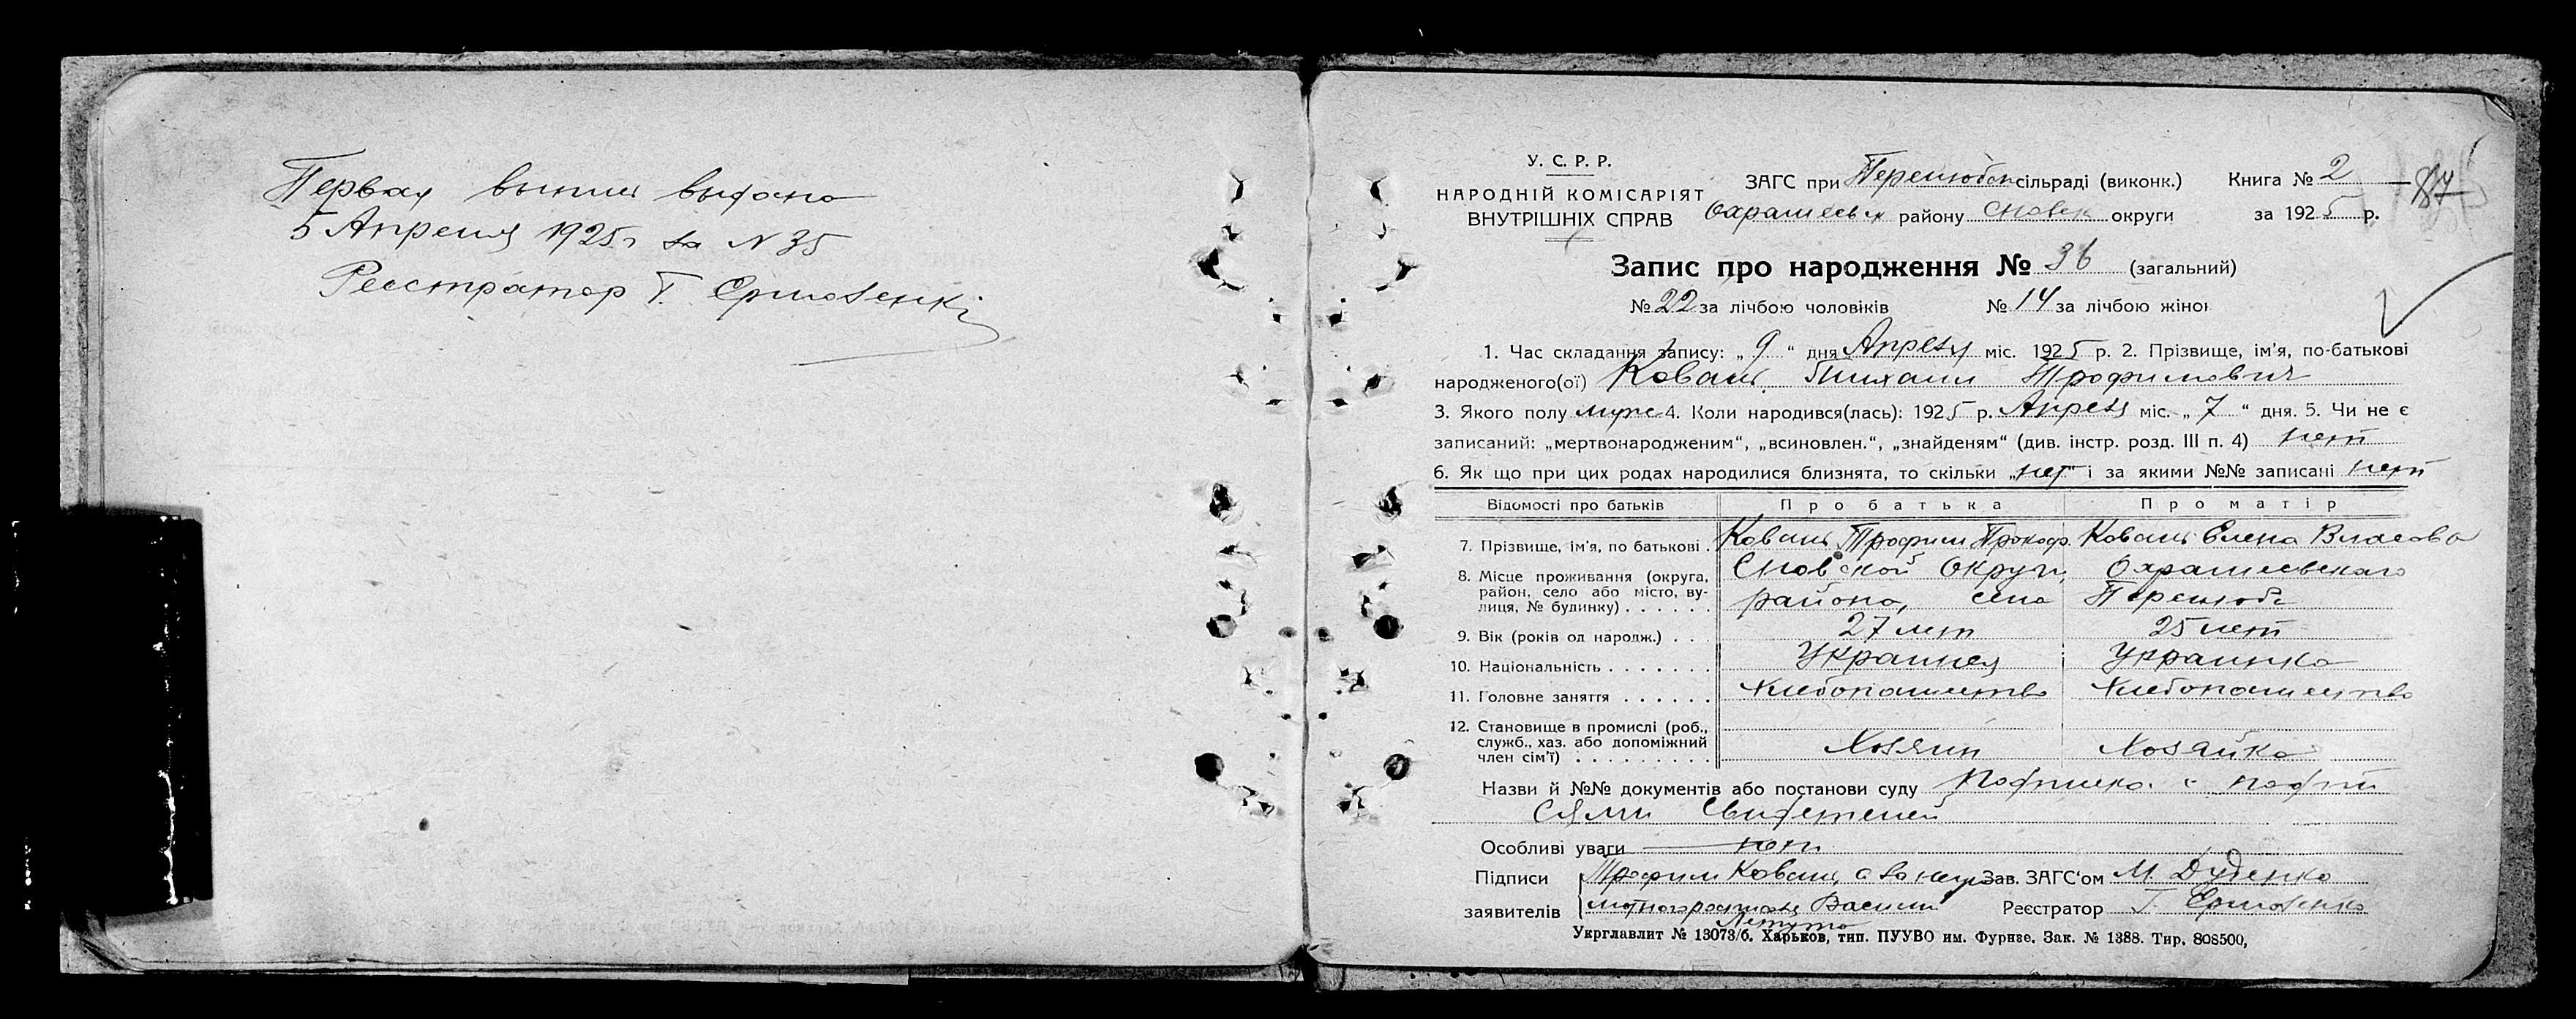 Первая выпись выдана
5 Апреля 1925 г за N 35
Реестратор Т. Ермоленко
У. С. Р. Р.
НАРОДНІЙ КОМІСАРІЯТ
ВНУТРІШНІХ СПРАВ
ЗАГС при Перелюбск сільраді (виконк.) Книга № 2
87
района Сновск округи за 1925 р.
Запис про народження № 36 (загальний)
№ 22 за лічбою чоловіків № 14 за лічбою жінок
1. Час складання запису: „ 9 “ дня Апреля міс. 1925 р. 2. Прізвище, ім'я, по-батькові
народженого(ої) Коваль Михаил Трофимович
3. Якого полу муж 4. Коли народився(лась): 1925 р. Апреля міс. „ 7 “ дня. 5. Чи не є
записаний: „мертвонародженим“, „всиновлен.“, „знайденям“ (див. інстр. розд. III п. 4) нет
6. Як що при цих родах народилися близнята, то скільки „нет“ і за якими №№ записані нет
Відомості про батьків Про батька Про матір
7. Прізвище, ім'я, по батькові . Коваль Трофим Прокоф. Коваль Елена Власова
8. Місце проживання (округа, Сновской Округи, Охрамеевскаго
район, село або місто, ву-
лиця, № будинку) . . . . . . района, село Перелюб
9. Вік (років од народж.) . . . 27 лет 25 лет
10. Національність . . . . . . . Украинец Украинка
11. Головне заняття . . . . . . Хлебопашество Хлебопашество
12. Становище в промислі (роб.,
служб., хаз. або допоміжний
член сім'ї) . . . . . . . . . Хозяин Хозяйка
Назви й №№ документів або постанови суду
Свидетелей
Особливі уваги нет
Підписи Трофим Коваль, а за негра Зав. ЗАГС'ом М. Дуденко
заявителів мотного росписался Василий Реєстратор Т. Ермоленко
Укрглавлит № 13073/б. Харьков, тип. ПУУВО им. Фрунзе. Зак. № 1388. Тир. 808500,